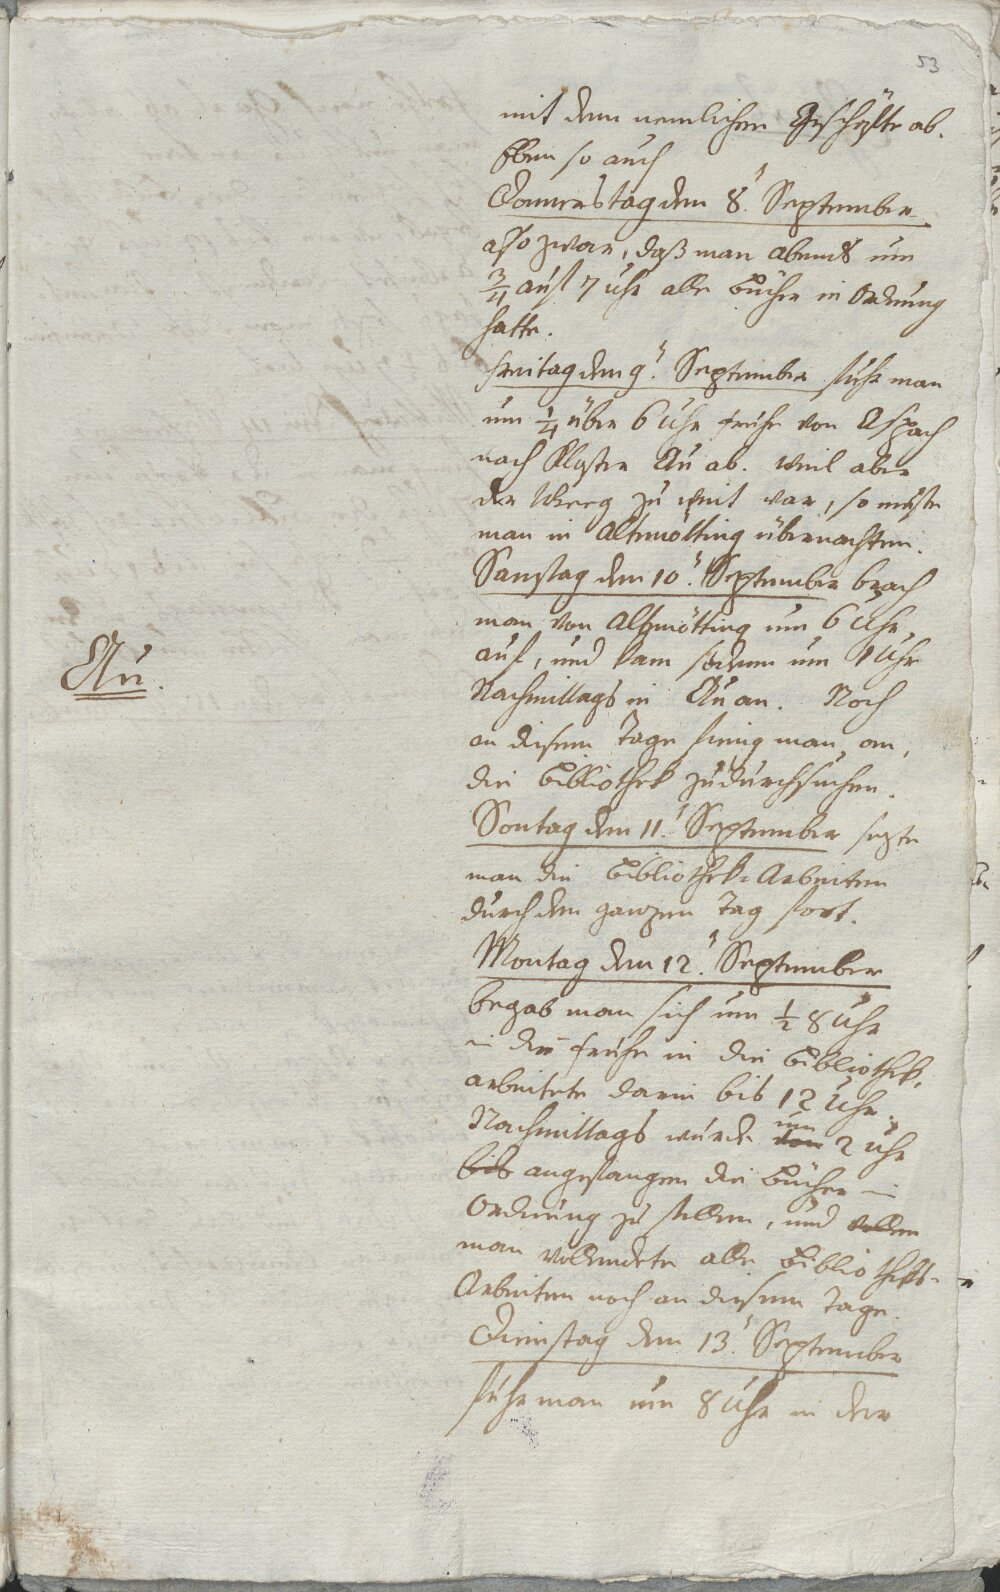 53
mit dem nemlichen Geschäfte ab.
Eben so auch
Donnerstag den 8.ᵗ September
also zwar, daß man abends um
3/4 auf 7 Uhr alle Bücher in Ordnung
hatte.
Freitag den 9.ᵗ September fuhr man
um 1/4 über 6 Uhr fruhe von Aspach
nach Kloster Au ab. Weil aber
der Weeg zu weit war, so mußte
man in Altenötting übernachten.
Samstag den 10.ᵗ September brach
man von Altenötting um 6 Uhr
auf, und kam sodenn um 1 Uhr
Au.
Nachmittags in Au an. Noch
an diesem Tage fieng man an,
die Bibliothek zu durchsuchen.
Sontag den 11.ᵗ September sezte
man die Bibliothek-Arbeiten
durch den ganzen Tag fort.
Montag den 12.ᵗ September
begab man sich um 1/2 8 Uhr
in der fruhe in die Bibliothek,
arbeitete darin bis 12 Uhr.
Nachmittags wurde von um 2 Uhr
bis angefangen die Bücher in
Ordnung zu stellen, und vollen
man vollendete alle Bibliotheks-
Arbeiten noch an diesem Tage.
Dienstag den 13.ᵗ September
fuhr man um 8 Uhr in der